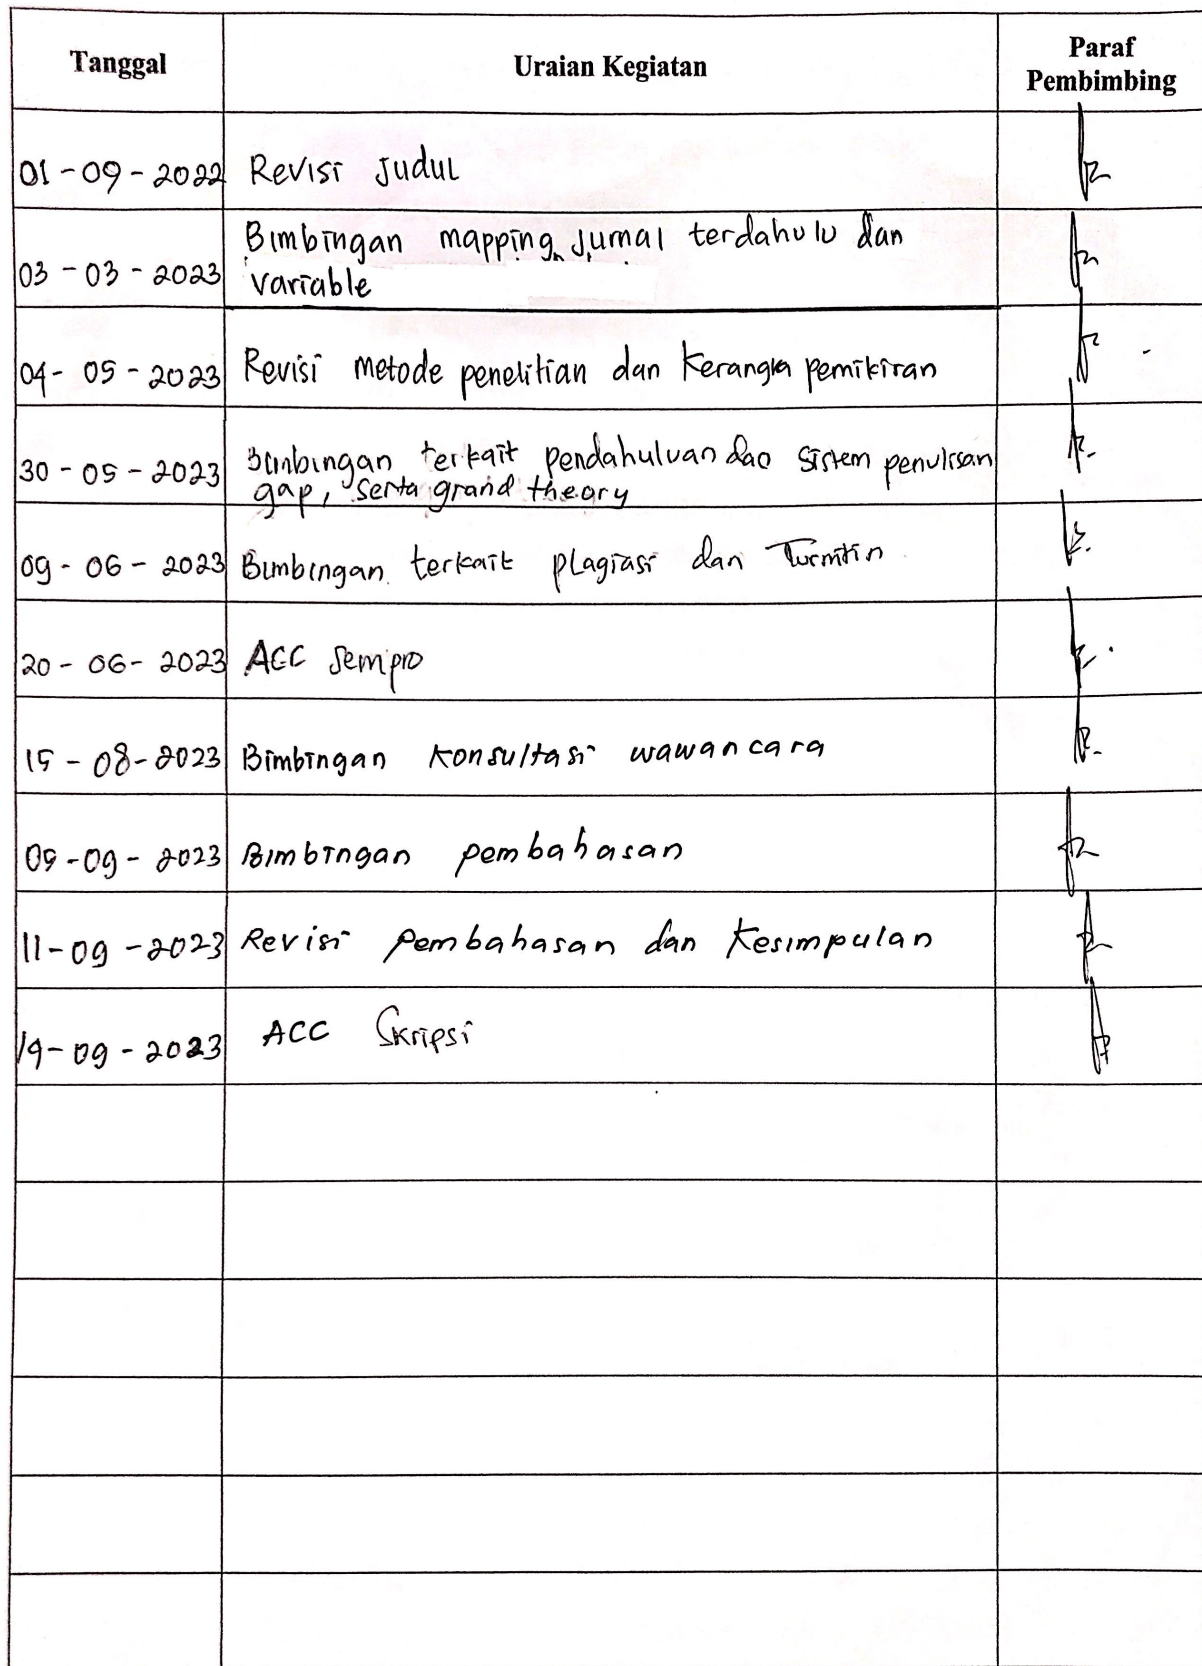 Tanggal Uraian Kegiatan Paraf
Pembimbing
01-09-2022 Revisi Judul
Bimbingan mapping jurnal terdahulu dan
03-03-2023 variable
04-05-2023 Revisi metode penelitian dan Kerangka pemikiran
30-05-2023 Bimbingan terkait pendahuluan dan sistem penulisan
gap, serta grand theory
09-06-2023 Bimbingan terkait plagiasi dan Turnitin
20-06-2023 ACC Sempro
15-08-2023 Bimbingan Konsultasi wawancara
05-09-2023 Bimbingan pembahasan
11-09-2023 Revisi pembahasan dan Kesimpulan
19-09-2023 ACC Skripsi